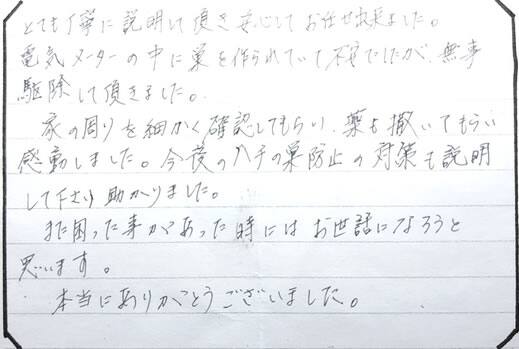 とても丁寧に説明して頂き安心してお任せ出来ました。
電気メーターの中に巣を作られていて不安でしたが、無事
駆除して頂きました。
家の周りを細かく確認してもらい、薬も撒いてもらい
感動しました。今後のハチの巣防止の対策も説明
して下さり助かりました。
また困った事があった時にはお世話になろうと
思います。
本当にありがとうございました。